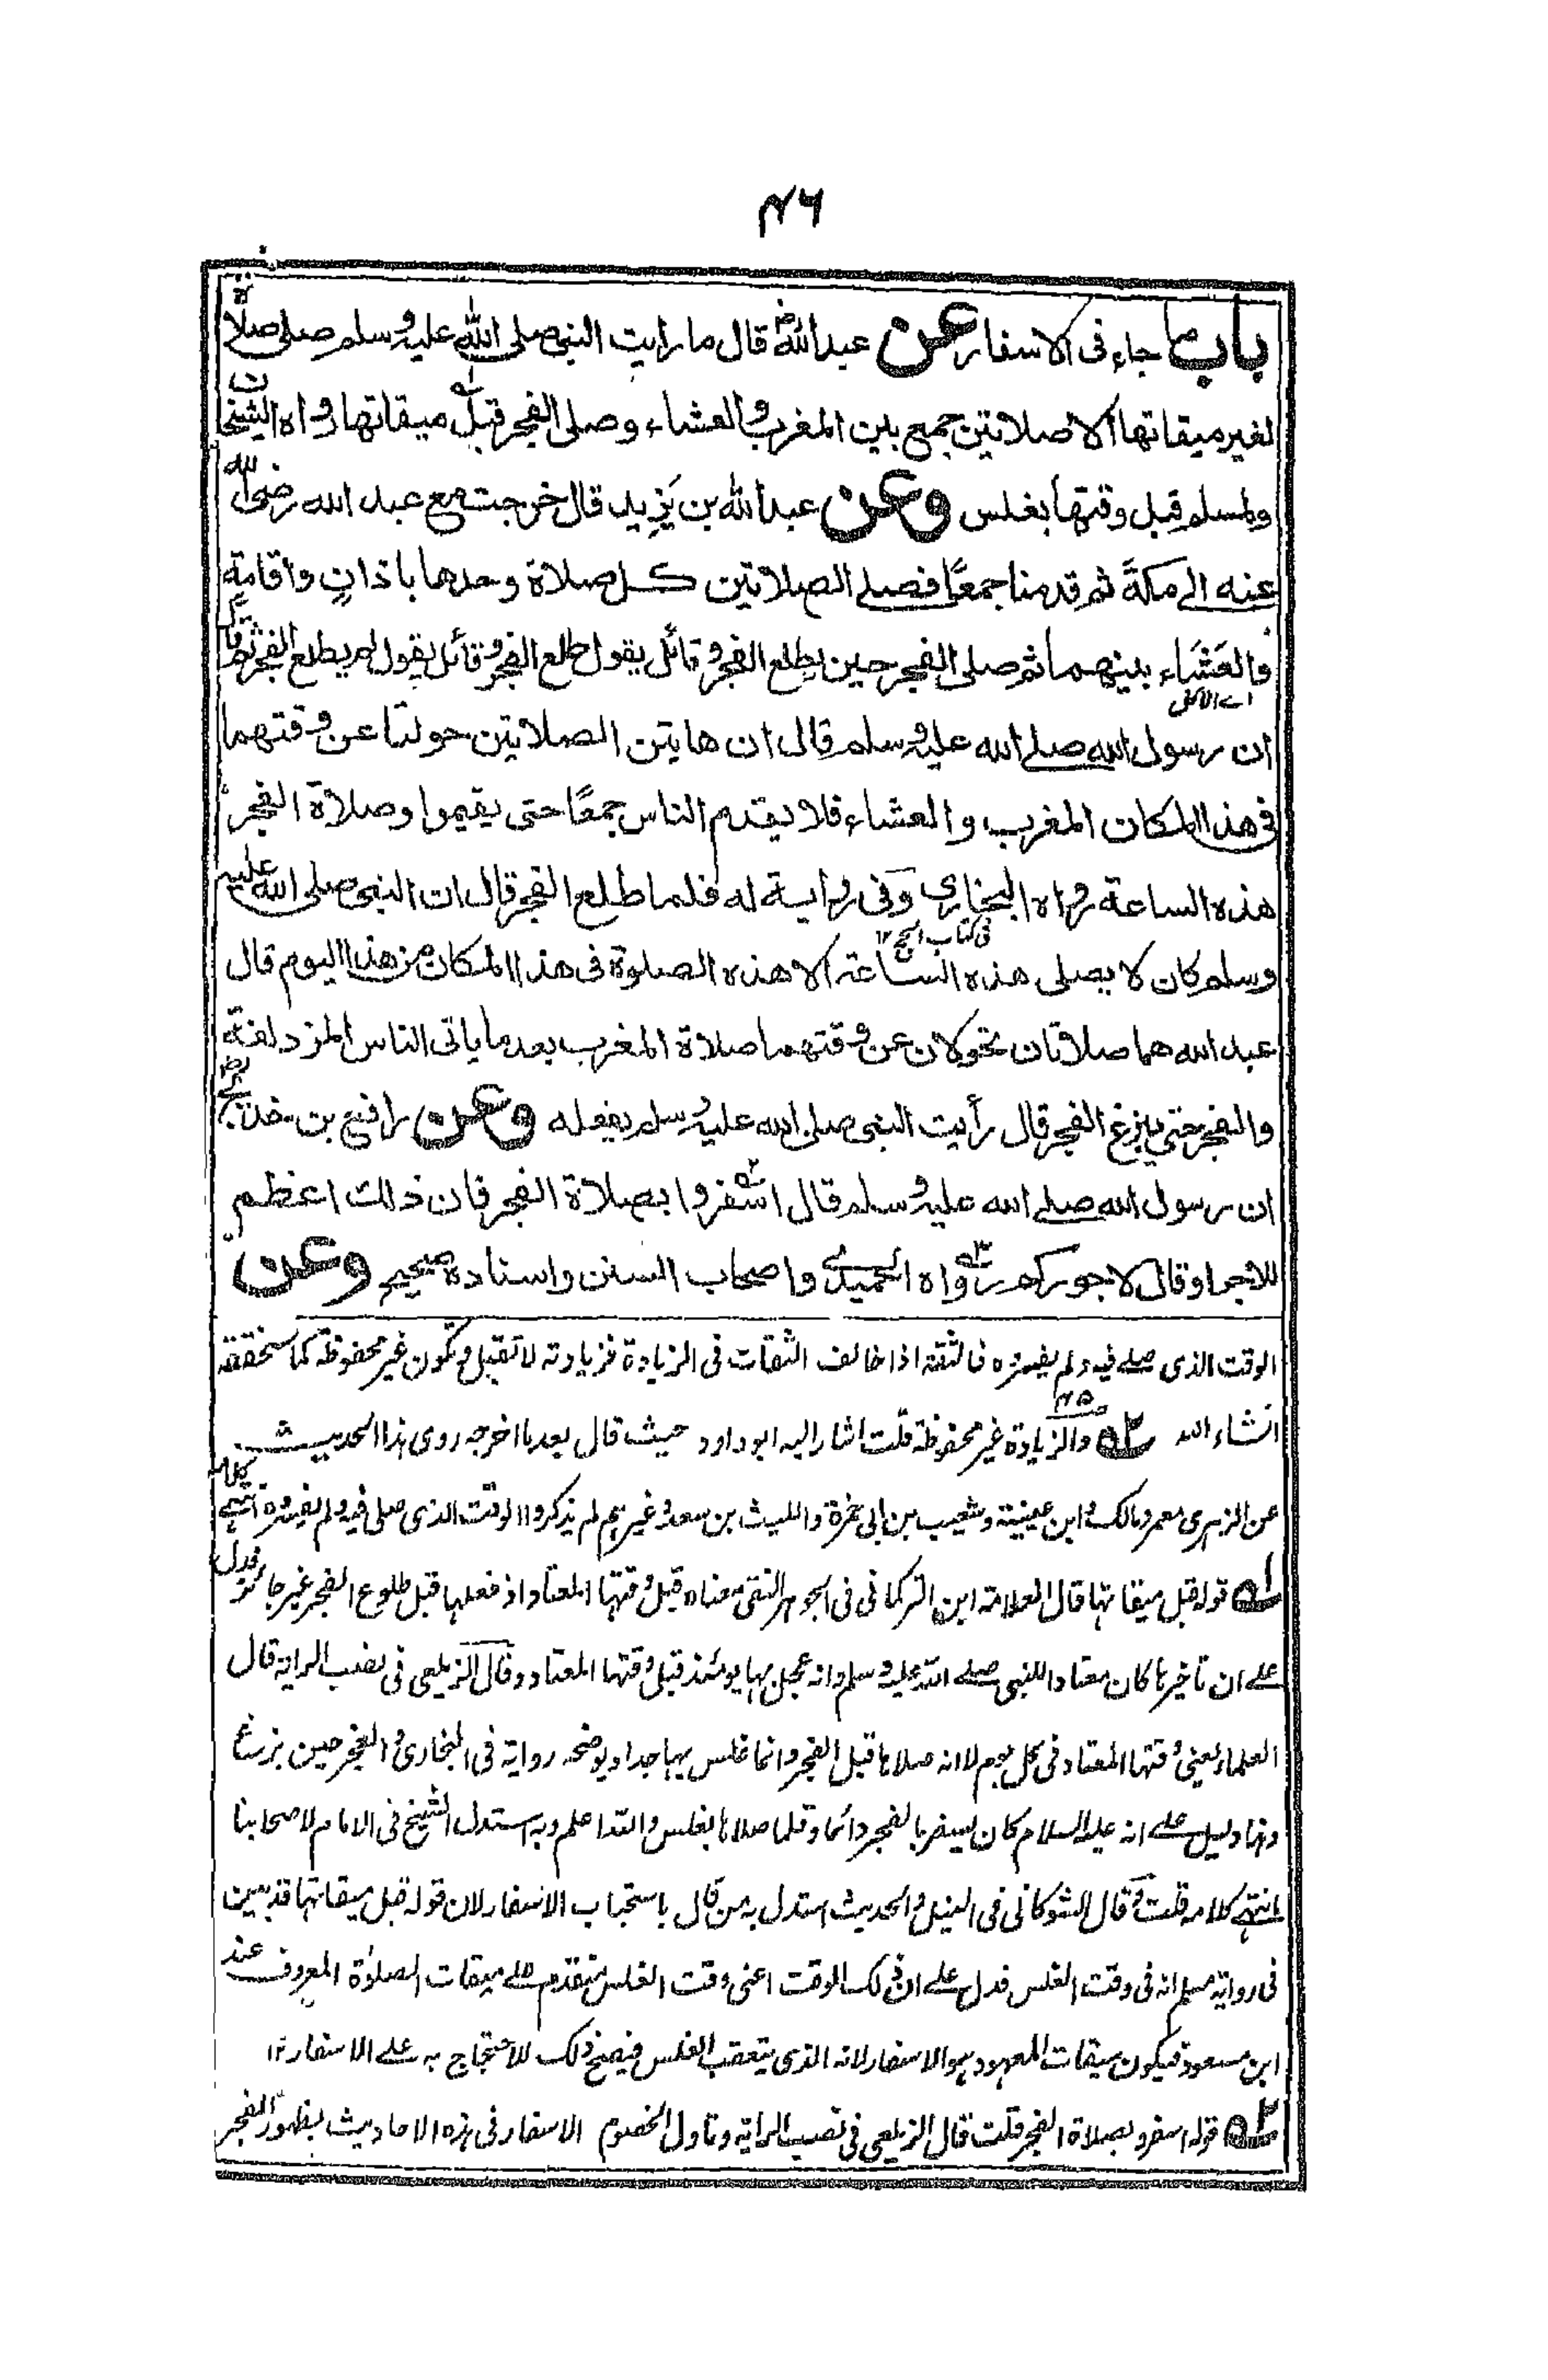 ٤٦
باب ما جاء فى الاسفار عن عبد الله رض قال ما رايت النبى صلى الله عليه وسلم صلى صلاة
لغير ميقاتها الا صلاتين جمع بين المغرب والعشاء وصلى الفجر قبل له ميقاتها رواه الشيخان
ولمسلم قبل وقتها بغلس وعن عبد الله بن يَزِيد قال خرجت مع عبد الله رضى الله
عنه الى مكةَ ثم قدمنا جمعًا فصلى الصلاتين كل صلاة وحدها باذانٍ واقامةٍ
والعَشَاء بينهما ثم صلى الفجر حين طلع الفجر وقائل يقول طلع الفجر وقائل يقول لم يطلع الفجر ثم قال
اے الاكل
ان رسول الله صلى الله عليه وسلم قال ان هاتين الصلاتين حولتا عن وقتهما
فى هذا المكان المغرب والعشاء فلا يقدم الناس جمعًا حتى يقيموا وصلاة الفجر
هذه الساعة رواه البخارى وَفى رواية له فلما طلع الفجر قال ان النبى صلى الله عليه
فى كتاب الحج ١٢
وسلم كان لا يصلى هذه الساعة الا هذه الصلوة فى هذا المكان من هذا اليوم قال
عبد الله هما صلاتان تحولان عن وقتهما صلاة المغرب بعد ما ياتى الناس المزدلفة
والفجر حتى يبزغ الفجر قال رأيت النبى صلى الله عليه وسلم يفعله وعن رافع بن خديج رض
ان رسول الله صلى الله عليه وسلم قال اسفروا ٢ه بصلاة الفجر فان ذلك اعظم
للاجر او قال لاجوركم رواه ٣ه الحميدى واصحاب السنن واسناده صحيح وعن
الوقت الذى صلے فيه ولم يفسره فالثقة اذا خالف الثقات فى الزيادة فزيادته لا تقبل وتكون غير محفوظة كما سنحققه
انشاء الله ٢ه والزيادة غير محفوظة قلت اشار اليه ابو داود حيث قال بعد ما اخرجه روى هذا الحديث
عن الزہرى معمر ومالك وابن عيينة وشعيب بن ابى حمزة والليث بن سعد وغيرہم لم يذكروا الوقت الذى صلى فيه ولم يفسروه انتهى كلامه
١ه قوله قبل ميقاتها قال العلامة ابن التركمانى فى الجوہر النقى معناه قبل وقتها المعتاد اذ فعلها قبل طلوع الفجر غير جائز فدل
علے ان تاخيرہا كان معتادا للنبى صلے الله عليه وسلم وانه عجل بها يومئذ قبل وقتها المعتاد وقال الزيلعى فى نصب الراية قال
العلماء يعنى وقتها المعتاد فى كل يوم لا انه صلاہا قبل الفجر وانما غلس بہا جدا ويوضحه رواية فى البخارى والفجر حين بزغ
وہذا دليل علے انه عليه السلام كان يسفر بالفجر دائما وقلما صلاہا بغلس والله اعلم وبه استدل الشيخ فى الامام لاصحابنا
انتهے كلامه قلت وقال الشوكانى فى النيل والحديث استدل به من قال باستحباب الاسفار لان قوله قبل ميقاتها قد بين
فى رواية مسلم انه فى وقت الغلس فدل علے ان ذلك الوقت اعنى وقت الغلس متقدم علے ميقات الصلوٰة المعروف عند
ابن مسعود فيكون ميقات المعہود ہو الاسفار لانه الذى يتعقب الغلس فيصح ذلك للاحتجاج به علے الاسفار ١٢
٢ه قوله اسفروا بصلاة الفجر قلت قال الزيلعى فى نصب الراية وتاول الخصوم الاسفار فى ہذه الاحاديث بظہور الفجر